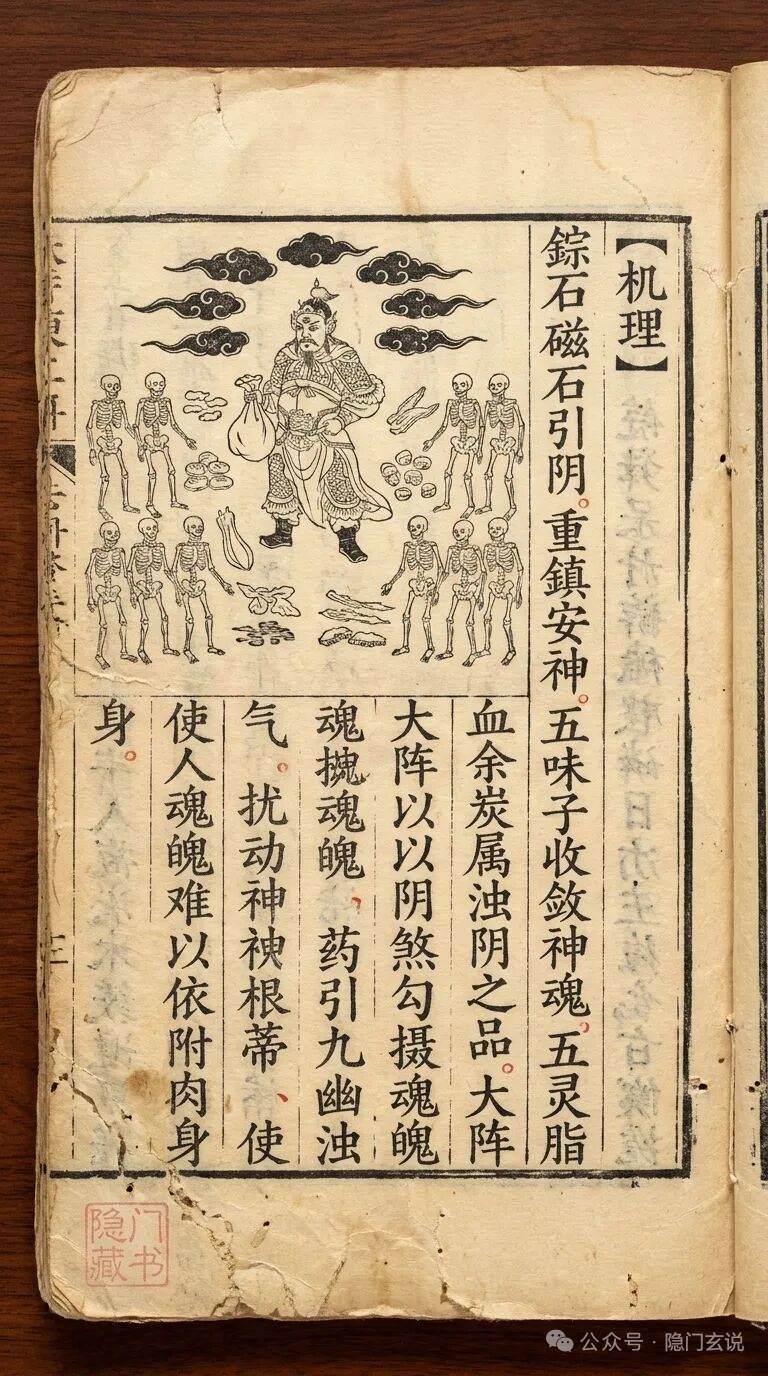 【机理】
錝石磁石引阴。重鎮安神。五味子收敛神魂。五灵脂
血余炭属浊阴之品。大阵
大阵以以阴煞勾摄魂魄
魂魂魄,药引九幽浊
气。扰动神根蒂、使
使人魂魄难以依附肉身
身。
隐门
藏书
公众号·隐门玄说